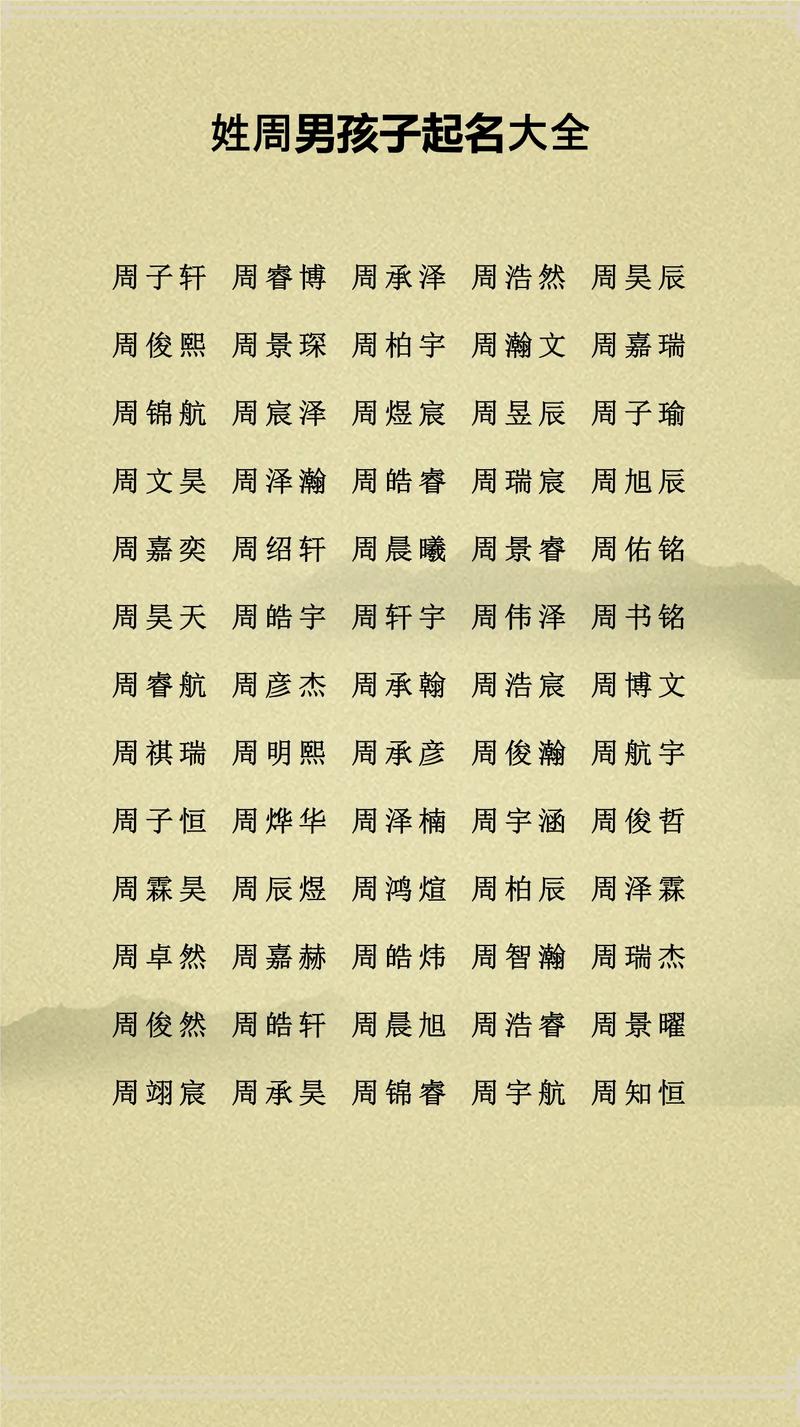 姓周男孩子起名大全
周子轩 周睿博 周承泽 周浩然 周昊辰
周俊熙 周景琛 周柏宇 周瀚文 周嘉瑞
周锦航 周宸泽 周煜宸 周昱辰 周子瑜
周文昊 周泽瀚 周皓睿 周瑞宸 周旭辰
周嘉奕 周绍轩 周晨曦 周景睿 周佑铭
周昊天 周皓宇 周轩宇 周伟泽 周书铭
周睿航 周彦杰 周承翰 周浩宸 周博文
周祺瑞 周明熙 周承彦 周俊瀚 周航宇
周子恒 周烨华 周泽楠 周宇涵 周俊哲
周霖昊 周辰煜 周鸿煊 周柏辰 周泽霖
周卓然 周嘉赫 周皓炜 周智瀚 周瑞杰
周俊然 周皓轩 周晨旭 周浩睿 周景曜
周翊宸 周承昊 周锦睿 周宇航 周知恒